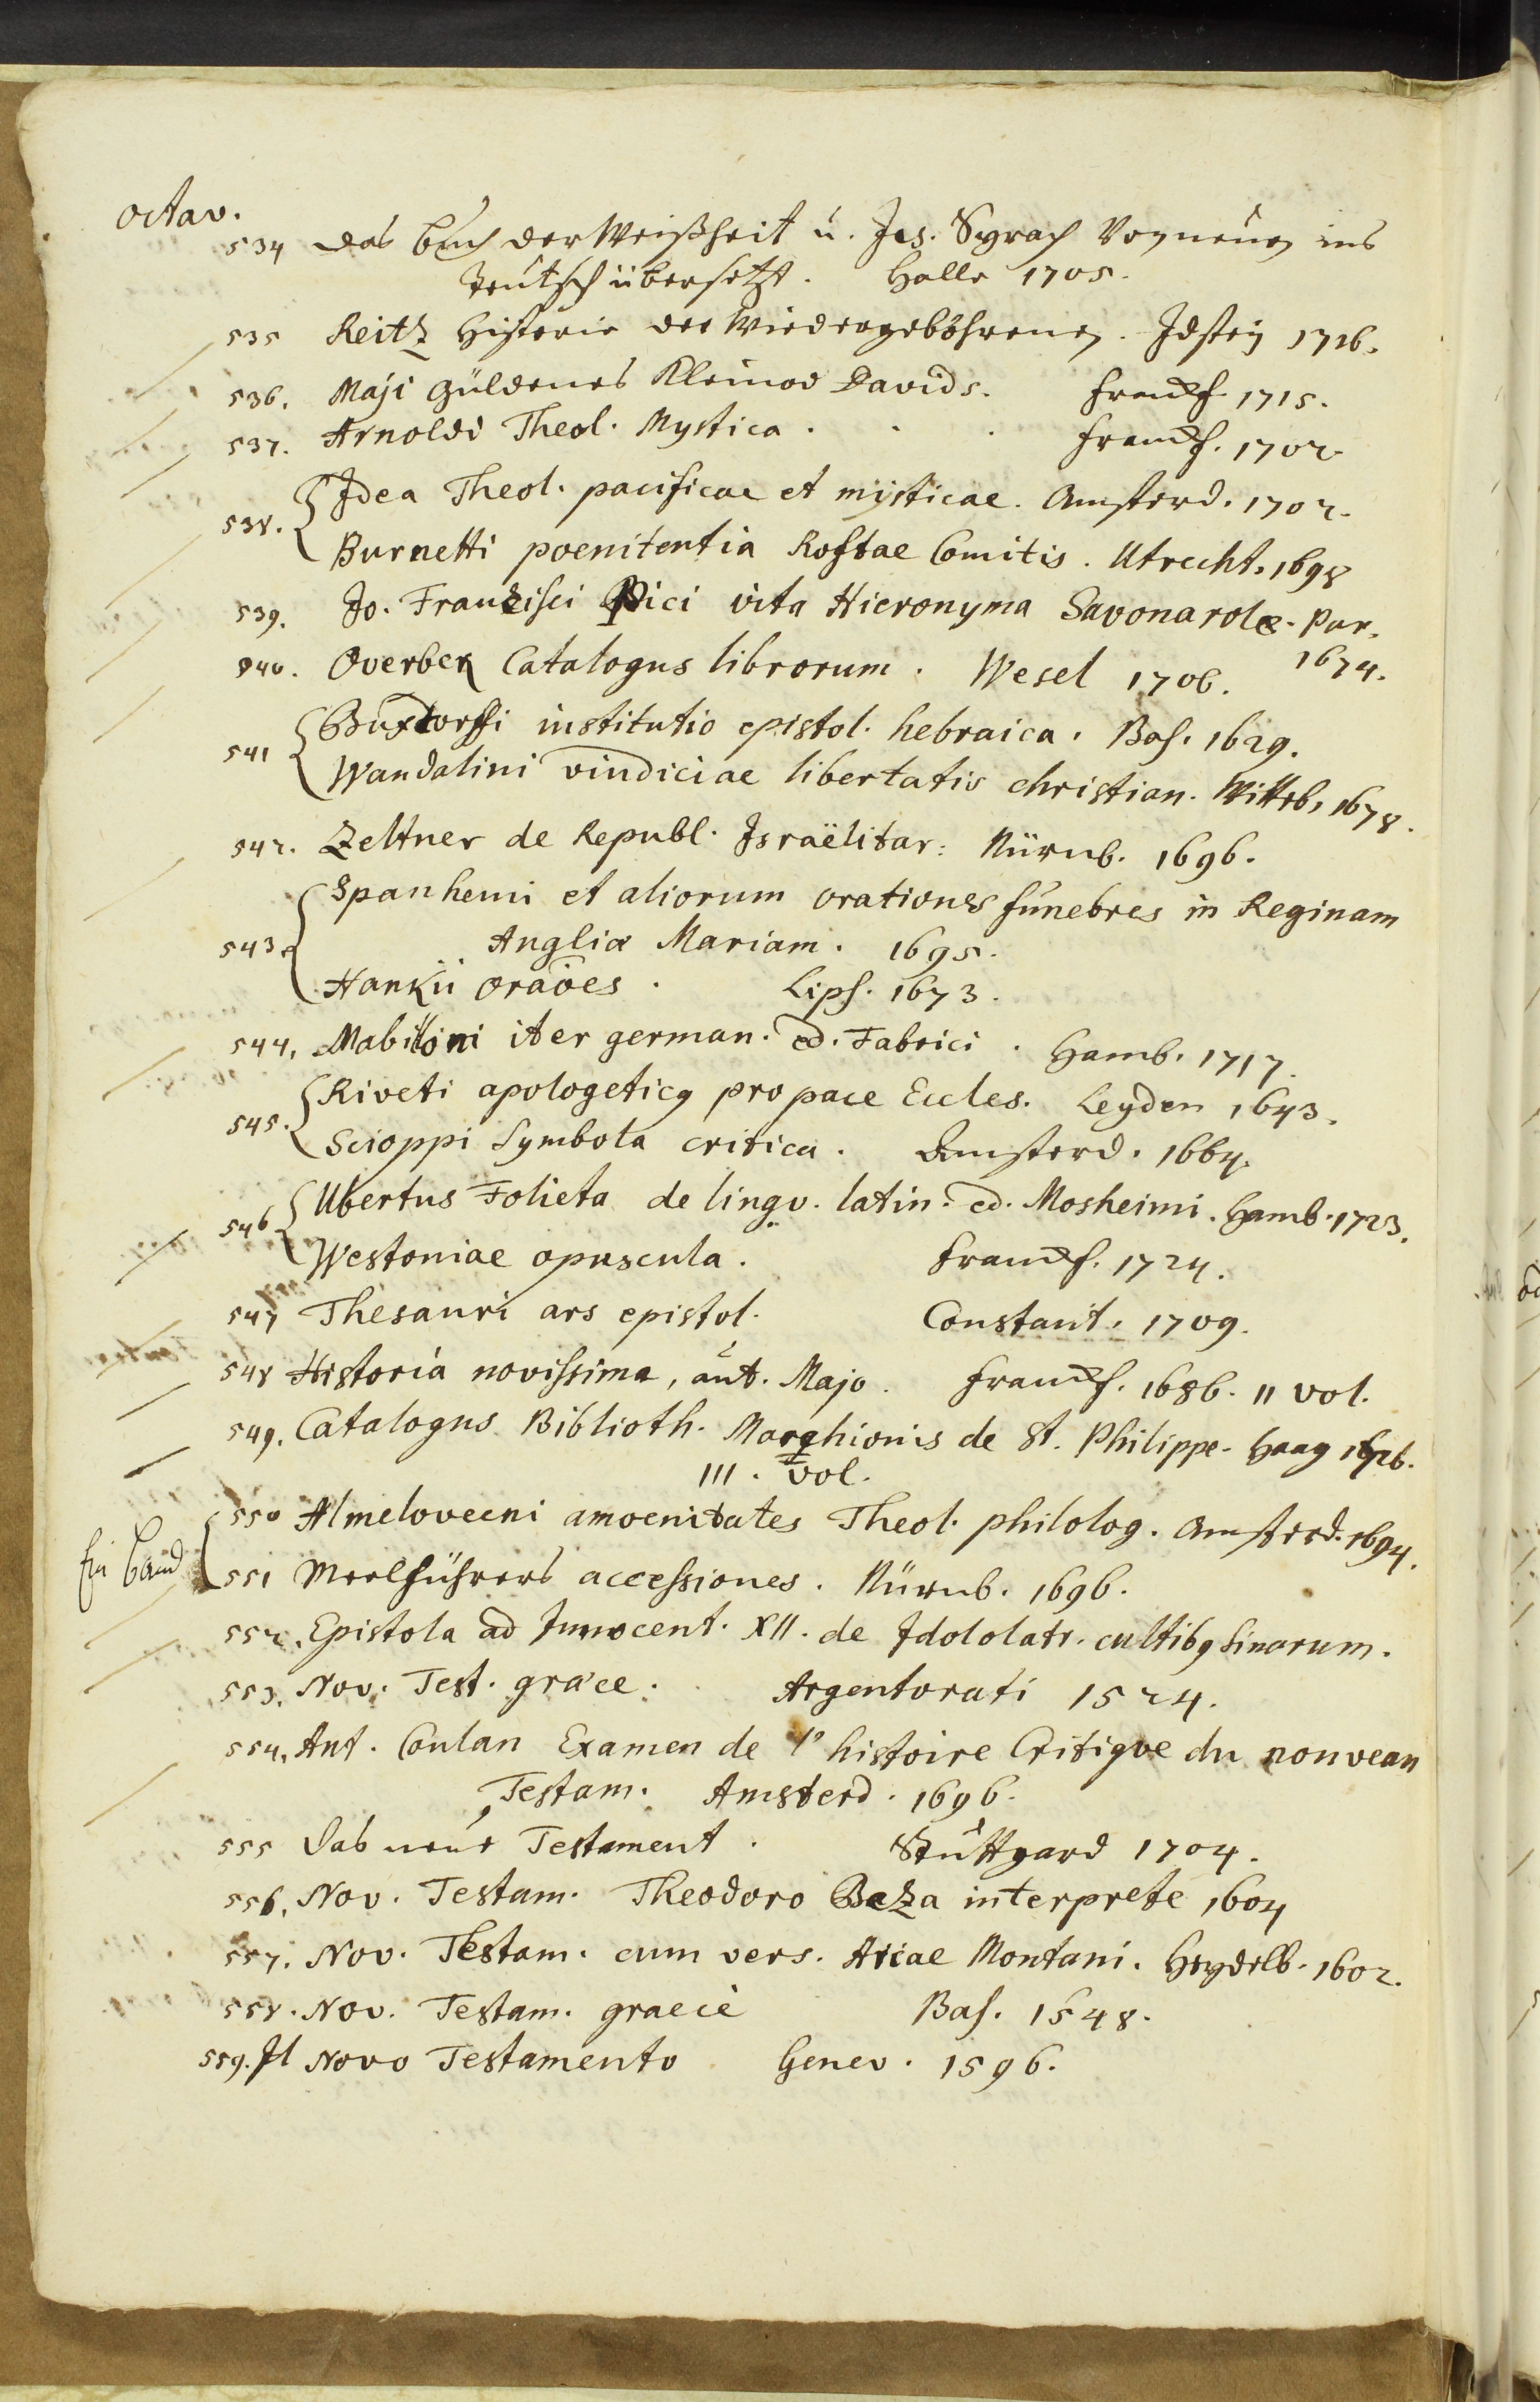 octav.
534 das Buch der Weißheit u. Jes. Syrach Von neuen ins
Teutsch übersetzt. Halle 1705.
535 Reitz Historie der Wiedergebohrenen. Idstein 1716.
536. Maji güldenes Kleinod Davids. Franckf. 1715.
537. Arnoldi Theol. Mystica . . . Franckf. 1702.
538. { Idea Theol. pacificae et mysticae. Amsterd. 1702.
Burnetti poenitentia Roftae Comitis. Utrecht. 1698
539. Jo. Francisci Pici vita Hieronyma Savonarolæ. Par.
1674.
540. Overbek Catalogus librorum. Wesel 1706.
541 { Buxtorffi institutio epistol. hebraica. Bas. 1629.
Wandalini vindiciae libertatis christian. Wittb. 1678.
542. Zeltner de Republ. Israëlitar: Nürnb. 1696.
543. { Spanhemi et aliorum orationes funebres in Reginam
Angliæ Mariam. 1695.
Hankii oraões. Lips. 1673.
544. Mabilloni iter german. ed. Fabrici. Hamb. 1717.
545. { Riveti apologeticq pro pace Eccles. Leyden 1643.
Scioppi Symbola critica. Amsterd. 1664.
546 { Ubertus Folieta de lingv. latin. ed. Mosheimi. Hamb. 1723.
Westoniae opuscula. Franckf. 1724.
547 Thesauri ars epistol. Constant. 1709.
548 Historia novissima, aut. Majo. Franckf. 1686. II vol.
549. Catalogus Biblioth. Marchionis de St. Philippe. Haag 1726.
III. vol.
Ein Band { 550 Almeloveeni amoenitates Theol. philolog. Amsterd. 1694.
551 Meelführers accessiones. Nürnb. 1696.
552. Epistola ad Innocent. XII. de Idololatr. cultibq Sinarum.
553. Nov. Test. graece. Argentorati 1524.
554. Ant. Coulan Examen de l'histoire Critique du nouveau
Testam. Amsterd. 1696.
555 Das neue Testament. Stuttgard 1704.
556. Nov. Testam. Theodoro Beza interprete 1604
557. Nov. Testam. cum vers. Ariae Montani. Heydelb. 1602.
558. Nov. Testam. graecè Bas. 1548.
559. Il Novo Testamento Genev. 1596.